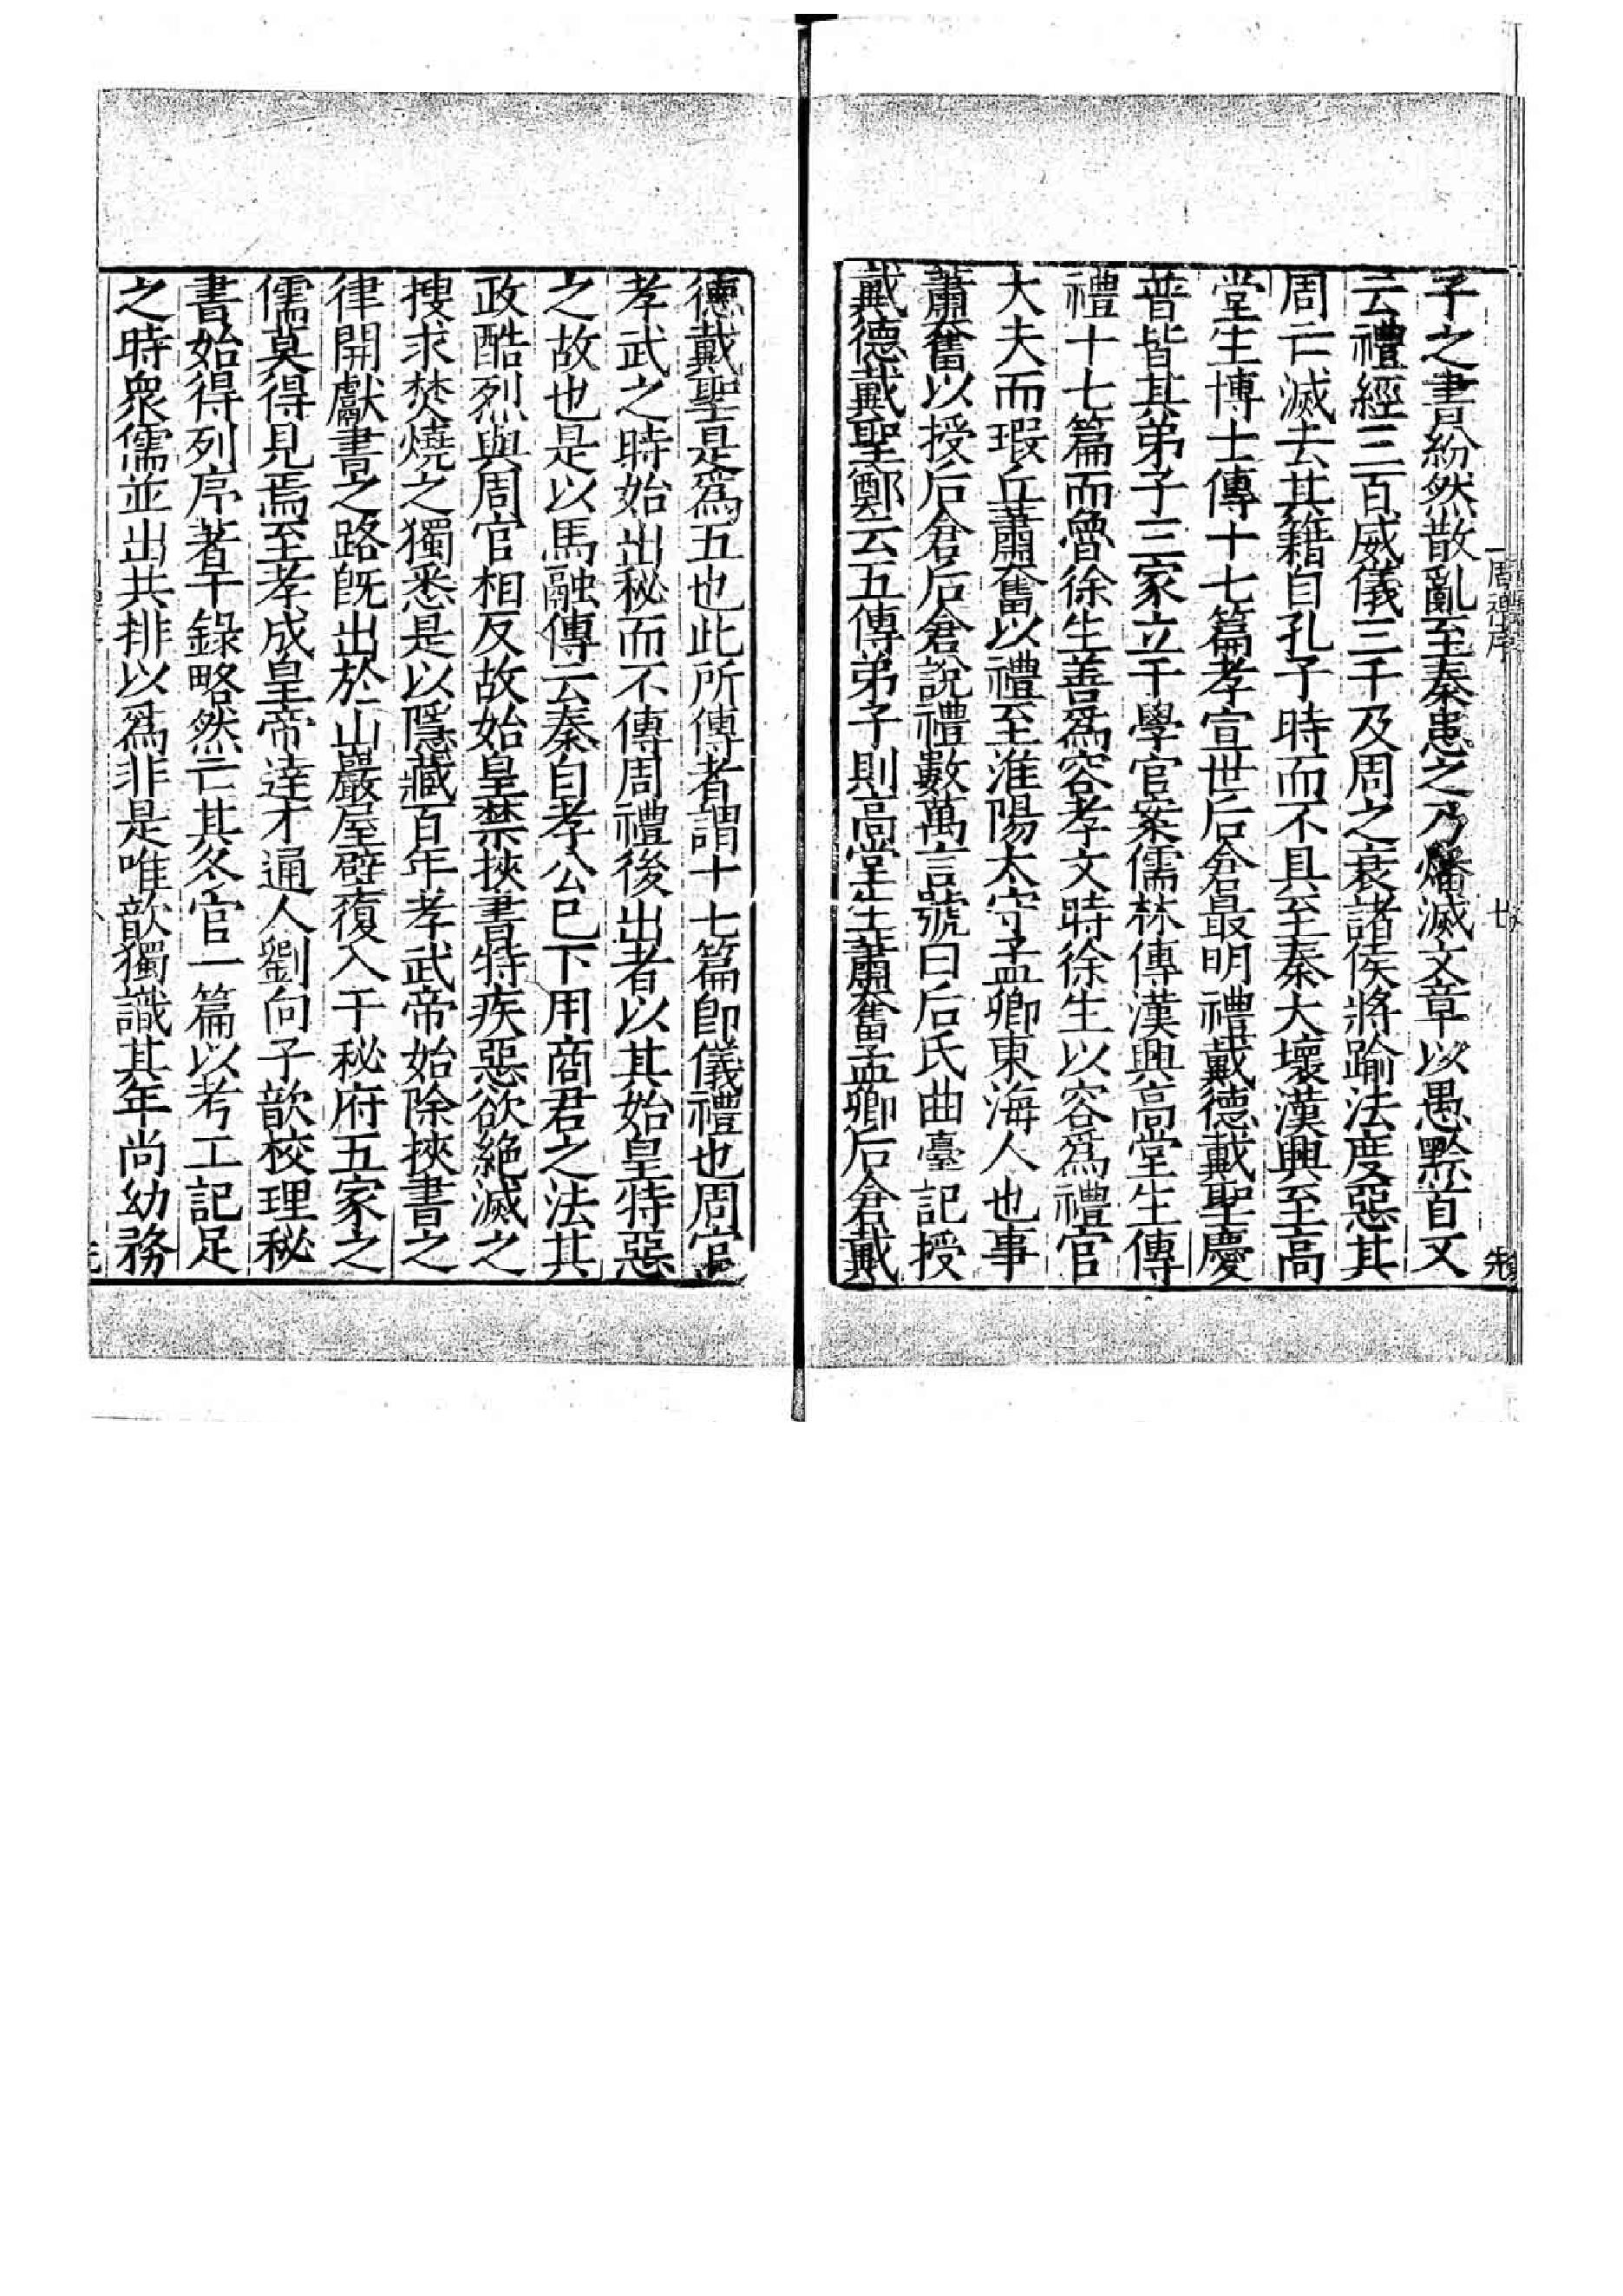 周禮序
七
子之書紛然散亂至秦患之乃燔滅文章以愚黔首又
云禮經三百威儀三千及周之衰諸侯將踰法度惡其
周亡滅去其籍自孔子時而不具至秦大壞漢興至高
堂生博士傳十七篇孝宣世后倉最明禮戴德戴聖慶
普皆其弟子三家立于學官案儒林傳漢興高堂生傳
禮十七篇而魯徐生善爲容孝文時徐生以容爲禮官
大夫而瑕丘蕭奮以禮至淮陽太守孟卿東海人也事
蕭奮以授后倉后倉說禮數萬言號曰后氏曲臺記授
戴德戴聖鄭云五傳弟子則高堂生蕭奮孟卿后倉戴
德戴聖是爲五也此所傳者謂十七篇卽儀禮也周官
孝武之時始出秘而不傳周禮後出者以其始皇特惡
之故也是以馬融傳云秦自孝公已下用商君之法其
政酷烈與周官相反故始皇禁挾書特疾惡欲絶滅之
搜求焚燒之獨悉是以隱藏百年孝武帝始除挾書之
律開獻書之路旣出於山巖屋壁復入于秘府五家之
儒莫得見焉至孝成皇帝逹才通人劉向子歆校理秘
書始得列序著于錄略然亡其冬官一篇以考工記足
之時衆儒並出共排以爲非是唯歆獨識其年尚幼務